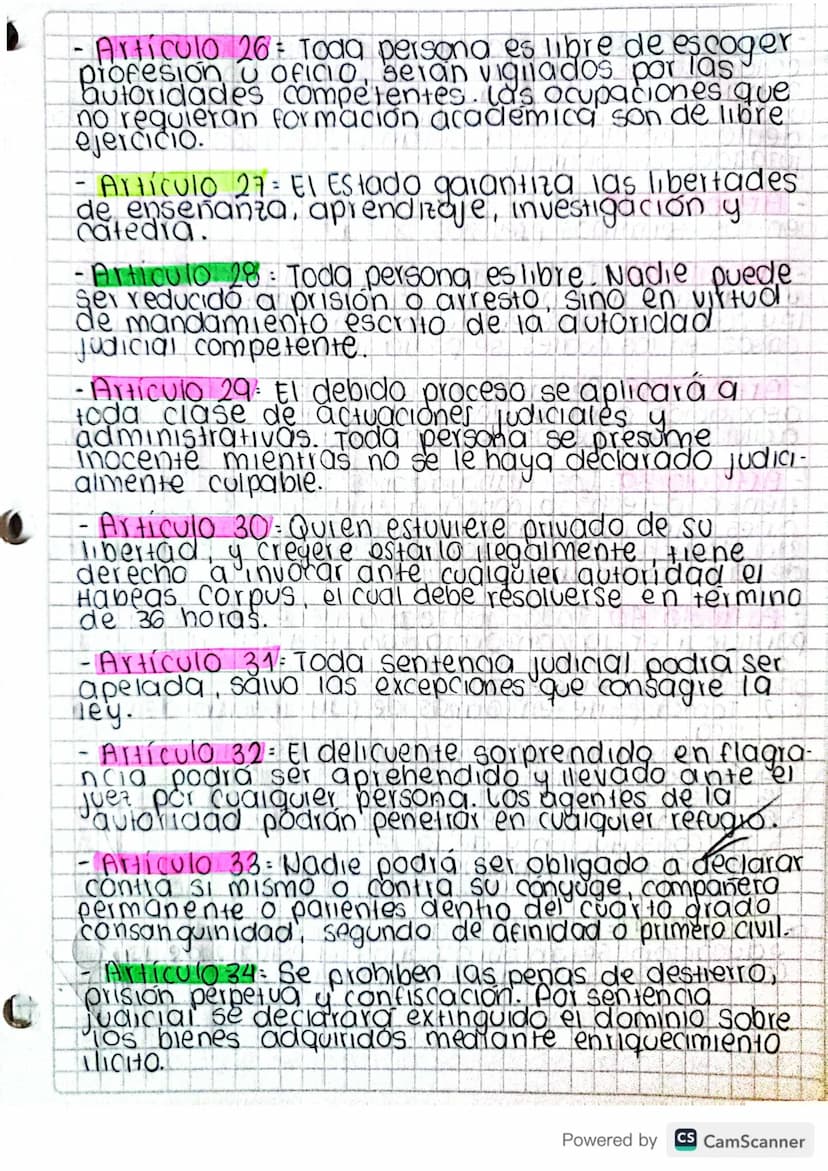 - Artículo 26: Toda persona es libre de escoger
profesión u oficio, serán vigilados por las
autoridades competentes. Las ocupaciones que
no requieran formación académica son de libre
ejercicio.
- Artículo 27: El Estado garantiza las libertades
de enseñanza, aprendizaje, investigación y
catedra.
- Artículo 28: Toda persona es libre. Nadie puede
ser reducido a prisión o arresto, sino en virtud
de mandamiento escrito de la autoridad
judicial competente.
- Artículo 29: El debido proceso se aplicará a
toda clase de actuaciones judiciales y
administrativas. Toda persona se presume
inocente mientras no se le haya declarado judici-
almente culpable.
- Artículo 30: Quien estuviere privado de su
libertad, y creyere estarlo ilegalmente, tiene
derecho a invocar ante cualquier autoridad el
Habeas Corpus, el cual debe resolverse en término
de 36 horas.
- Artículo 31: Toda sentencia judicial podrá ser
apelada, salvo las excepciones que consagre la
ley.
- Artículo 32: El delicuente sorprendido en flagra-
ncia podrá ser aprehendido y llevado ante el
juez por cualquier persona. Los agentes de la
autoridad podrán penetrar en cualquier refugio.
- Artículo 33: Nadie podrá ser obligado a declarar
contra si mismo o contra su conyuge, compañero
permanente o parientes dentro del cuarto grado
consanguinidad, segundo de afinidad o primero civil.
- Artículo 34: Se prohiben las penas de destierro,
prisión perpetua y confiscación. Por sentencia
judicial se declarará extinguido el dominio sobre
los bienes adquiridos mediante enriquecimiento
ilicito.
Powered by CS CamScanner